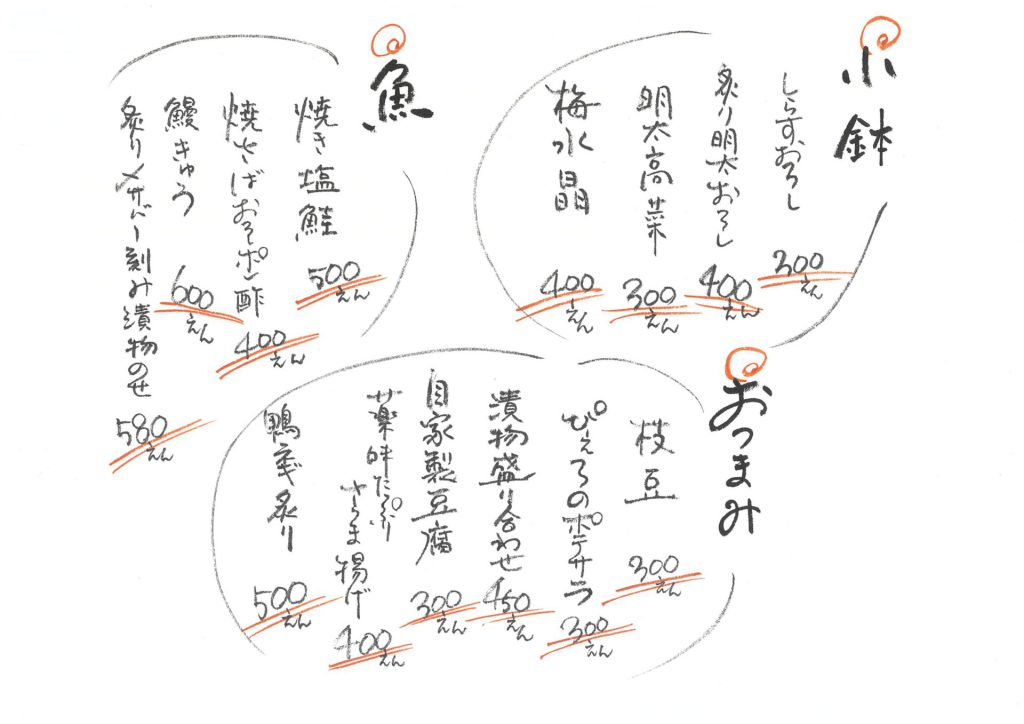 小鉢
しらすおろし
300えん
炙り明太おろし
400えん
明太高菜
300えん
梅水晶
400えん
魚
焼き塩鮭
500えん
焼さばおろしポン酢
400えん
鰻きゅう
600えん
炙り〆サバー刻み漬物のせ
580えん
おつまみ
枝豆
300えん
ぴえろのポテサラ
300えん
漬物盛り合わせ
450えん
自家製豆腐
300えん
薬味たっぷり
さつま揚げ
400えん
炙り
500えん